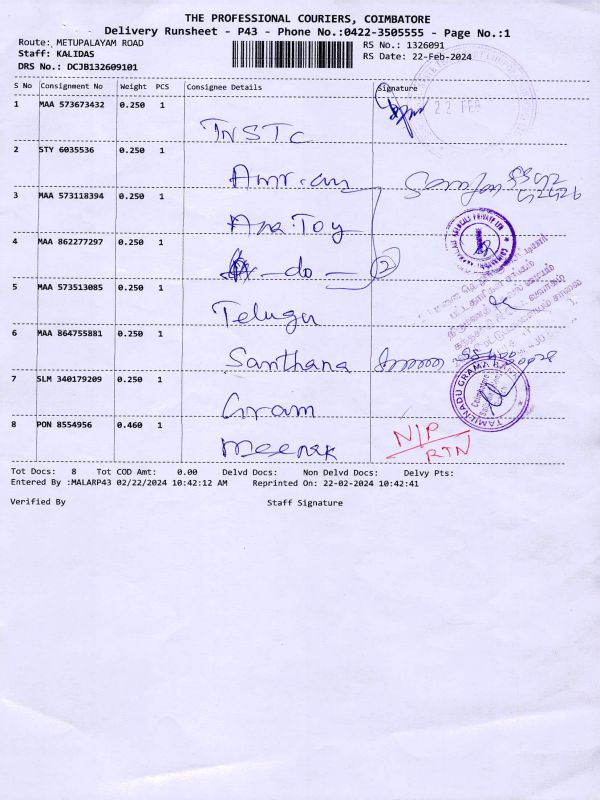 THE PROFESSIONAL COURIERS, COIMBATORE
Delivery Runsheet - P43 - Phone No.:0422-3505555 - Page No.:1
Route: METUPALAYAM ROAD
RS No.: 1326091
Staff: KALIDAS
RS Date: 22-Feb-2024
DRS No.: DCJB132609101
S No Consignment No Weight PCS Consignee Details Signature
1 MAA 573673432 0.250 1
22 FEB
INSTC
2 STY 6035536 0.250 1
3 MAA 573118394 0.250 1
Ana.Toy
4 MAA 862277297 0.250 1
-do- 2
5 MAA 573513085 0.250 1
Telugu
6 MAA 864755881 0.250 1
Santhana
7 SLM 340179209 0.250 1
TAMILNADU GRAMA BANK
Gram
8 PON 8554956 0.460 1
N/P
RTN
Meenak
Tot Docs: 8 Tot COD Amt: 0.00 Delvd Docs: Non Delvd Docs: Delvy Pts:
Entered By :MALARP43 02/22/2024 10:42:12 AM Reprinted On: 22-02-2024 10:42:41
Verified By Staff Signature